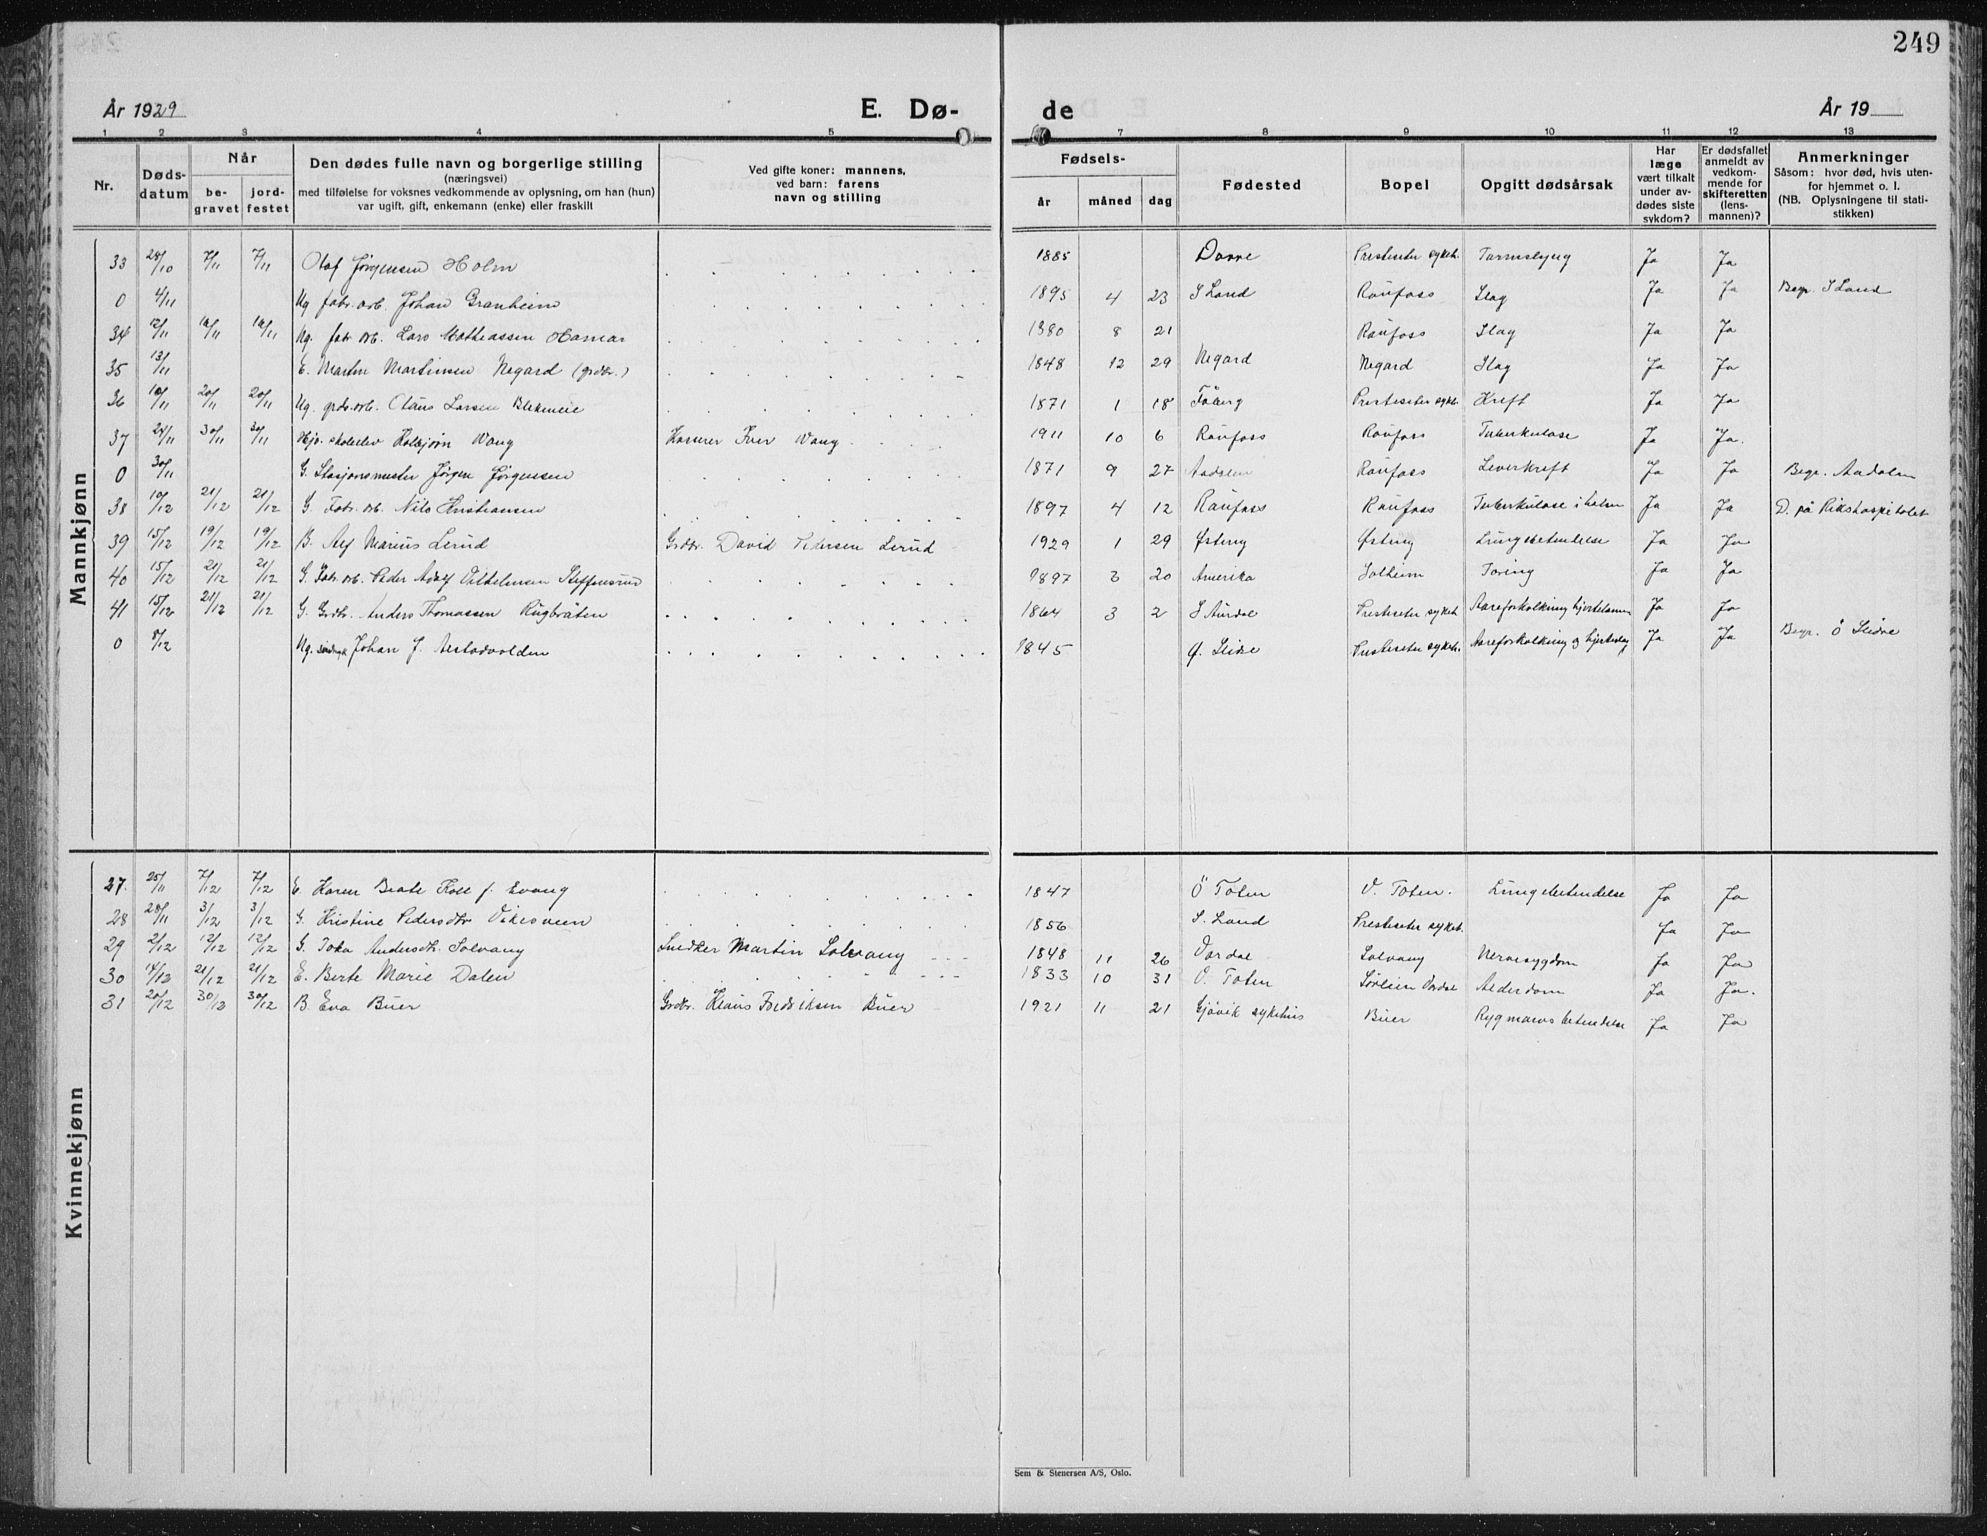 249
År 1929 E. Dø- de År 19
1 2 3 4 5 7 8 9 10 11 12 13
Nr. Døds-datum Når be-gravet jord-festet Den dødes fulle navn og borgerlige stilling (næringsvei) med tilføielse for voksnes vedkommende av oplysning, om han (hun) var ugift, gift, enkemann (enke) eller fraskilt Ved gifte koner: mannens, ved barn: farens navn og stilling Fødsels- år måned dag Fødested Bopel Opgitt dødsårsak Har læge vært tilkalt under av-dødes siste sykdom? Er dødsfallet anmeldt av vedkom-mende for skifteretten (lens-mannen)? Anmerkninger Såsom: hvor død, hvis uten-for hjemmet o. l. (NB. Oplysningene til stati-stikken)
Mannkjønn
33 28/10 7/11 7/11 Olaf Jørgensen Holm 1885 Dovre Presteseter sykeh. Tarmslyng Ja Ja
0 4/11 Ug. fabr. arb. Johan Granheim 1895 4 23 S Land Raufoss Slag Ja Ja Begr. S Land
34 12/11 19/11 19/11 Ug. fabr. arb. Lars Mathiassen Hamar 1880 8 21 Raufoss Slag Ja Ja
35 13/11 E. Martin Martinsen Negard (grdbr.) 1848 12 29 Negard Negard Slag Ja Ja
36 10/11 20/11 20/11 Ug. grds. arb. Olaus Larsen 1871 1 18 Fåberg Presteseter sykeh. Kreft Ja Ja
37 24/11 30/11 30/11 skoleelev Wang Kasserer Iver Wang 1911 10 6 Raufoss Raufoss Tuberkulose Ja Ja.
0 30/11 G. Stasjonsmester Jørgen Jørgensen 1871 9 27 Aadalen Raufoss Leverkreft Ja Ja Begr. Aadalen
38 10/12 21/12 21/12 G. Fabr. arb. Nils Kristiansen 1897 4 12 Raufoss Raufoss Tuberkulose i halsen Ja Ja D. på Rikshospitalet
39 15/12 19/12 19/12 B. Alf Marius Lerud Grdbr. David Pedersen Lerud 1929 1 29 Østeng Østeng Lungebetendelse Ja Ja
40 15/12 21/12 21/12 G. Fabr. arb. Peder Adolf Vilhelmsen Steffensrud 1897 3 20 Amerika Solheim Tæring Ja Ja
41 15/12 21/12 21/12 G. Grdbr. Anders Thomassen Rugbråten 1864 3 2 S Aurdal Presteseter sykeh. Aareforkalkning hjertelamm Ja Ja
0 8/12 Ug. Johan J. 1845 Ø. Slidre Presteseter sykeh. Aareforkalkning og hjerteslag Ja Ja Begr. Ö Slidre
Kvinnekjønn
27. 25/11 7/12 7/12 E. Karen Beate Koll f. Evang 1847 Ö Toten V. Toten. Lungebetendelse Ja Ja
28 28/11 3/12 3/12 G. Kristine Pedersdtr. Vikesveen 1856 S. Land Presteseter sykeh. Ja Ja
29 2/12 12/12 12/12 G. Andersdtr. Solvang Snedker Martin Solvang 1848 11 26 Vardal Solvang Nervesygdom Ja Ja
30 14/12 21/12 21/12 E. Berte Marie Dalen 1833 10 31 V. Toten Sørlien Vardal Alderdom Ja Ja.
31 20/12 30/12 30/12 B. Eva Buer Grdbr. Klaus Fredriksen Buer 1921 11 21 Gjøvik sykehus Buer Rygmarvsbetendelse Ja Ja
Sem & Stenersen A/S, Oslo.